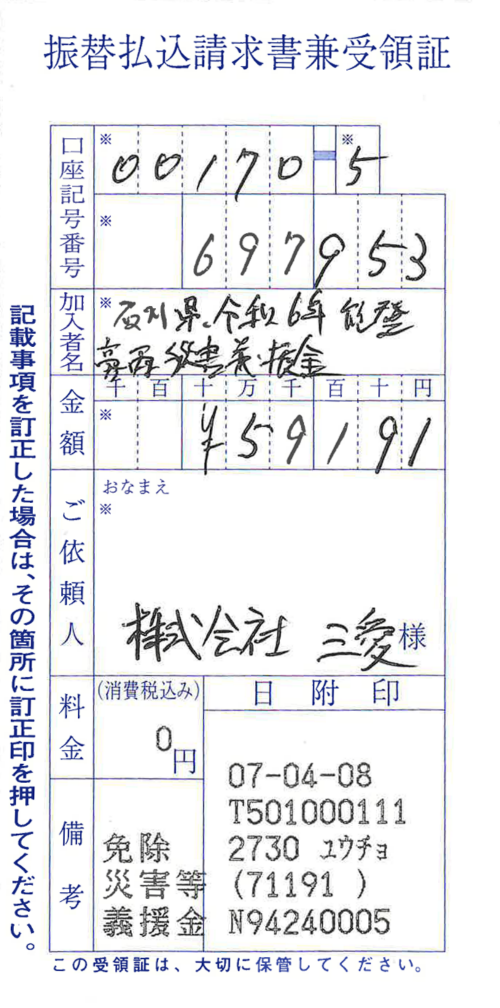 振替払込請求書兼受領証
口座記号番号
※ 00170-※5
※ 697953
加入者名
※石川県令和6年能登
豪雨災害義援金
金額
千百十万千百十円
※ ¥59191
ご依頼人
おなまえ
※
株式会社 三愛様
料金
(消費税込み)
0円
日附印
備考
免除
災害等
義援金
07-04-08
T501000111
2730 ユウチョ
(71191 )
N94240005
記載事項を訂正した場合は、その箇所に訂正印を押してください。
この受領証は、大切に保管してください。